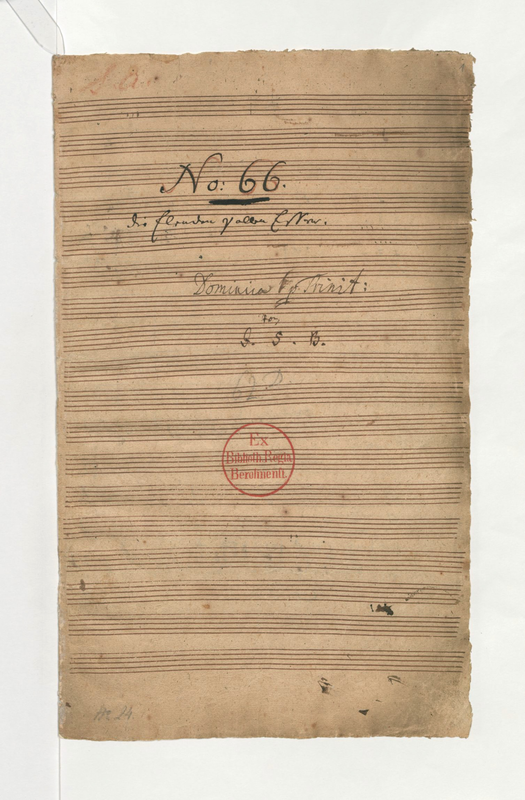 No: 66.
die Elenden sollen Essen.
Dominica 1 p Trinit:
von
J. S. B.
Ex
Biblioth. Regia
Berolinenſi.